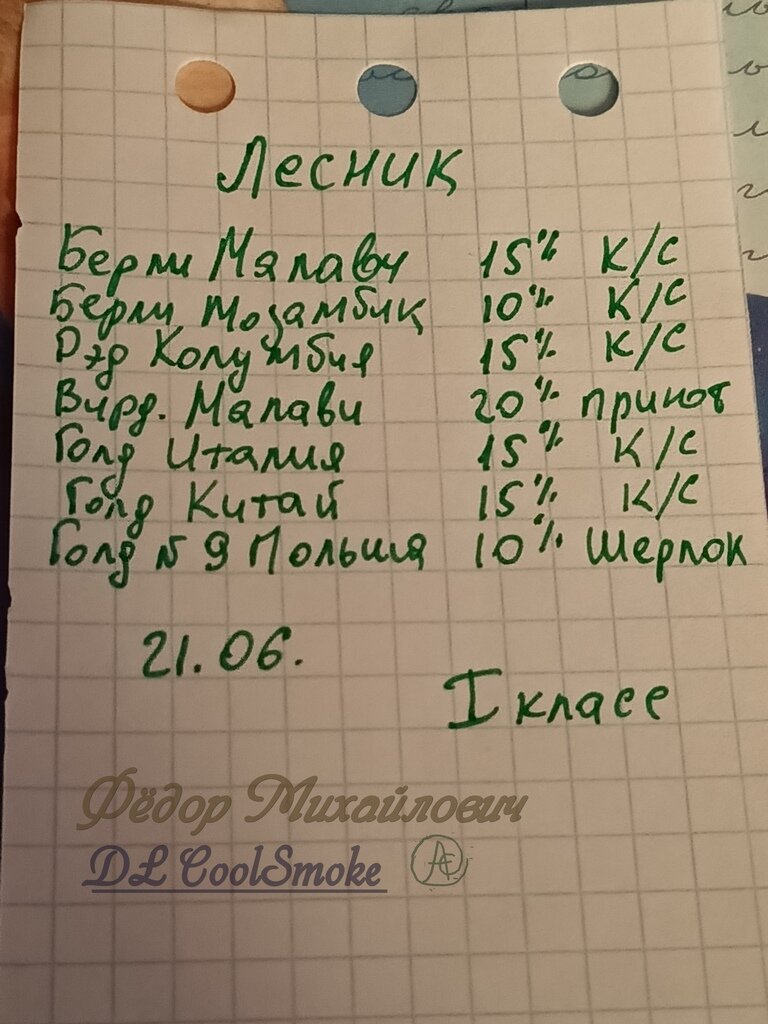 Лесник
Берли Малави 15% К/С
Берли Мозамбик 10% К/С
Рэд Колумбия 15% К/С
Вирд. Малави 20% принот
Голд Италия 15% К/С
Голд Китай 15% К/С
Голд №9 Польша 10% Шерлок
21.06.
I класс
Фёдор Михайлович
DL CoolSmoke